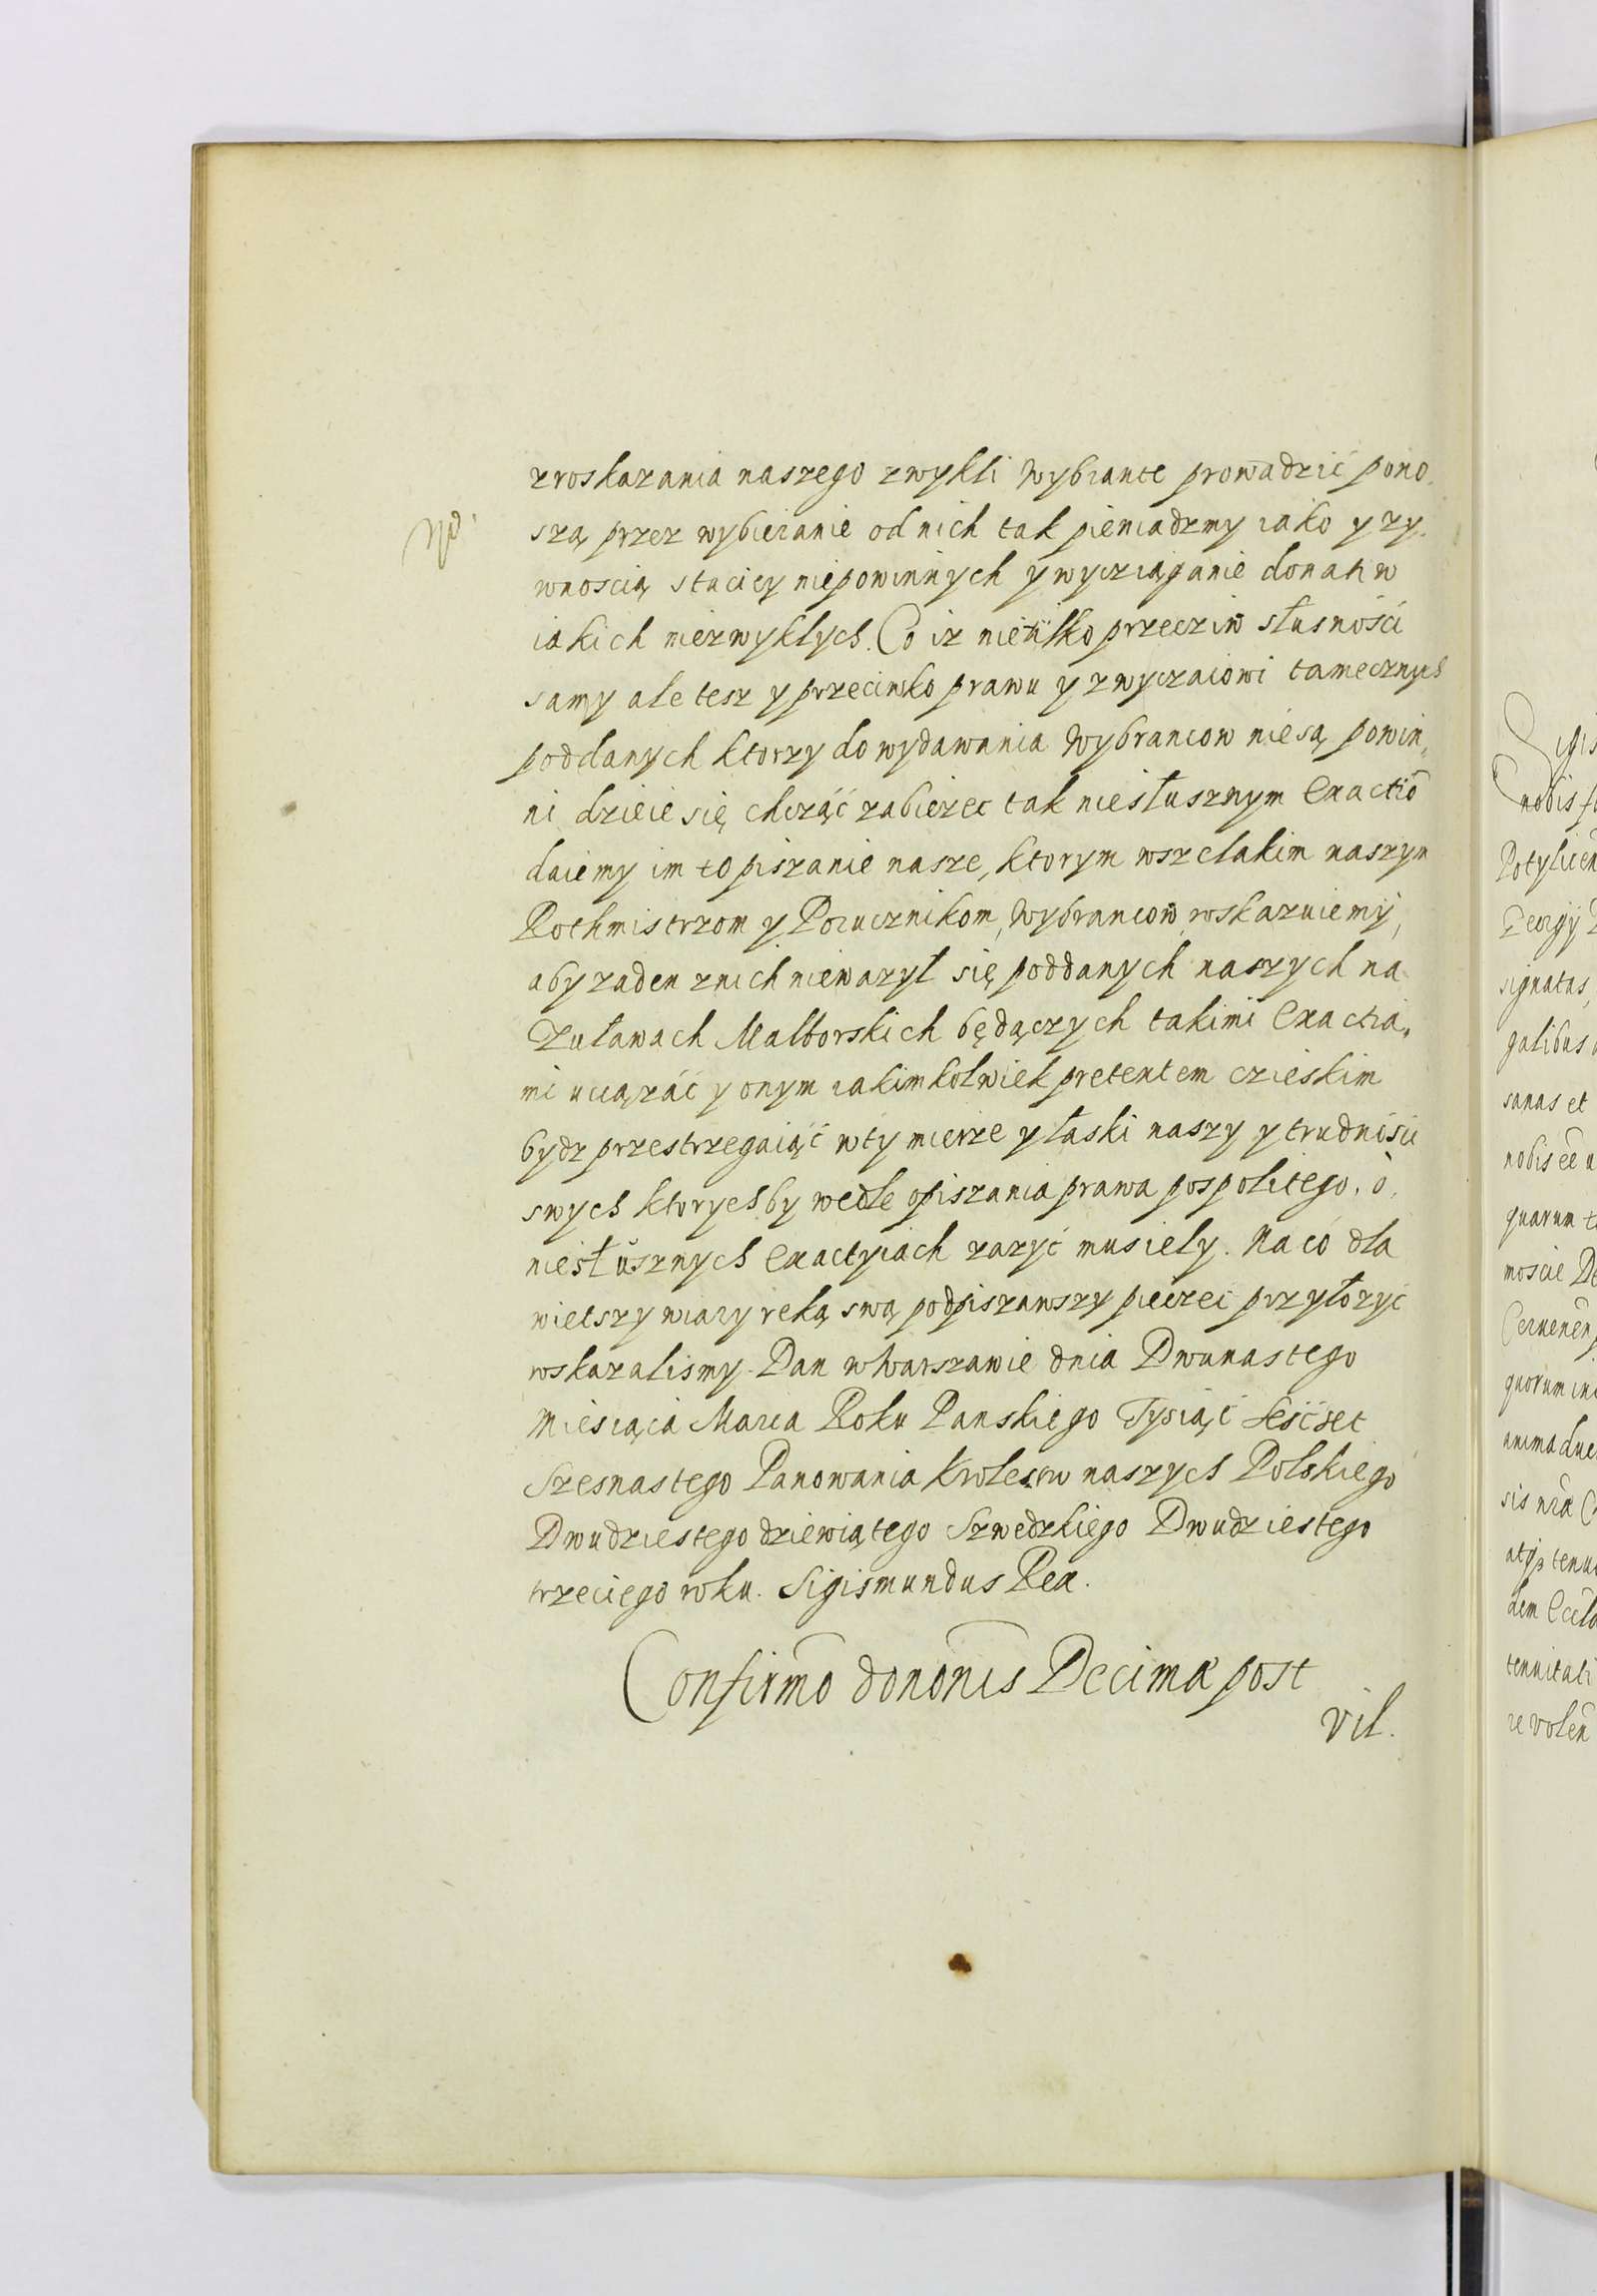 zroskazania naszego zwykli Wybrance prowadzić pono,
szą, przez wybieranie od nich tak pieniądzmy iako y zy,
wnoscią stacicy niepowinnych y wycziąganie donatiw
iakich niezwykłych. Co iz nietilko przecziw słusności
samy ale tesz y przeciwko prawu y zwyczaiowi tamecznych
poddanych ktorzy do wydawania Wybrancow nie są powin,
ni dzieie się, chcząć zabiezec tak niesłusznym Exactiō
daiemy im to piszanie nasze, ktorym wszelakim naszym
Rothmistrzom y Porucznikom, Wybrancow, roskazuiemy,
aby zaden znich nieważył się poddanych naszych na
Zuławach Malborskich będączych takimi Exactia,
mi uciązáć y onym iakimkolwiek pretextem czieskim
bydz przestrzegaiąć wty mierze y łaski naszy y trudnośći
swych ktorychby wedle opiszania prawa pospolitego. o,
niesłusznych Exactyiach zazyć musiely. Na co dla
wietszy wiary reką swą podpiszawszy pieczeć przyłozyć
roskazalismy. Dan w Warszawie dnia Dwunastego
Miesiąca Marca Roku Panskiego Tysiąć seśćset
Szesnastego Panowania Krolestw naszych Polskiego
Dwudziestego dziewiątego Szwedzkiego Dwudziestego
trzeciego roku. Sigismundus Rex.
Confirmō donōnis Decimæ post
vil.
Sigis
nobis
Potylicen
Georgÿ
signatas,
galibus
sanas et
nobis eē
quarum
moscie
Cervenen
quorum
animadue
sis nrā
atqz tenu
dem
tenuitati
re volen